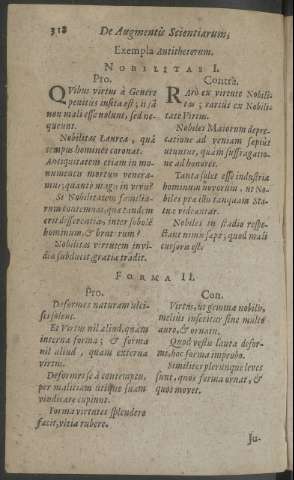 318 De Augmentis Scientiarum,
Exempla Antithetorum.
NOBILITAS I.
Pro.
QVibus virtus à Genere
penitus insita est; ij iã
non mali esse nolunt, sed ne-
queunt.
Nobilitas Laurea, quâ
tempus homines coronat.
Antiquitatem etiam in mo-
numentis mortuis venera-
mur; quantò magis in vivis?
Si Nobilitatem familia-
rum contemnas, quæ tandem
erit differentia, inter sobolẽ
hominum, & brutorum?
Nobilitas virtutem invi-
diæ subducit, gratiæ tradit.
Contrà.
RArò ex virtute Nobili-
tas; rariùs ex Nobili-
tate Virtus.
Nobiles Maiorum depre-
catione ad veniam sæpiùs
utuntur, quàm suffragatio-
ne ad honores.
Tanta solet esse industria
hominum novorum, ut No-
biles præ illis tanquam Sta-
tuæ videantur.
Nobiles in stadio respe-
ctant nimis sæpè; quod mali
cursoris est.
FORMA II.
Pro.
Deformes naturam ulci-
sci solent.
Et Virtus nil aliud, quàm
interna forma; & forma
nil aliud, quàm externa
virtus.
Deformes se à contemptu,
per malitiam utique suam
vindicare cupiunt.
Forma virtutes splendere
facit, vitia rubere.
Con.
Virtus, ut gemma nobilis,
melius inseritur sine multo
auro, & ornatu.
Quod vestis lauta defor-
mi, hoc forma improbo.
Similiter plerunque leves
sunt, quos forma ornat, &
quos movet.
Ju-